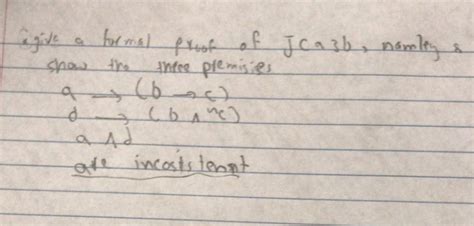 give a formal proof of JCa3b, namley s
show the three premisies
a → (b → c)
d → (b ∧ ~c)
a ∧ d
are incosistennt